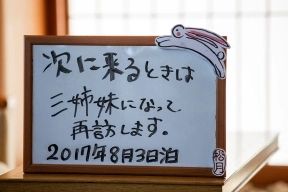 次に来るときは
三姉妹になって
再訪します。
2017年8月3日泊